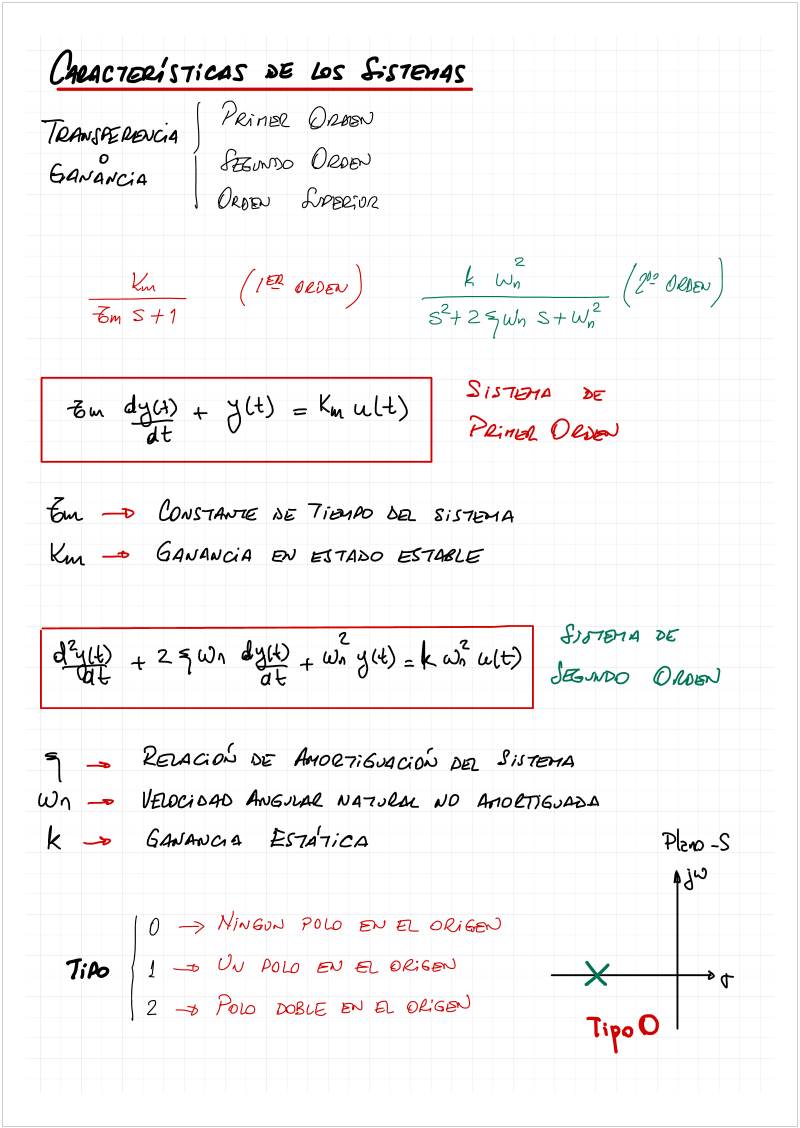 CARACTERÍSTICAS DE LOS SISTEMAS
TRANSFERENCIA
O
GANANCIA
PRIMER ORDEN
SEGUNDO ORDEN
ORDEN SUPERIOR
Km / (τm s + 1) (1ER ORDEN)
k ωn² / (s² + 2ξωn s + ωn²) (2DO ORDEN)
τm dy(t)/dt + y(t) = Km u(t)
SISTEMA DE
PRIMER ORDEN
τm → CONSTANTE DE TIEMPO DEL SISTEMA
Km → GANANCIA EN ESTADO ESTABLE
d²y(t)/dt + 2ξωn dy(t)/dt + ωn² y(t) = k ωn² u(t)
SISTEMA DE
SEGUNDO ORDEN
ξ → RELACIÓN DE AMORTIGUACIÓN DEL SISTEMA
ωn → VELOCIDAD ANGULAR NATURAL NO AMORTIGUADA
k → GANANCIA ESTÁTICA
TIPO
0 → NINGUN POLO EN EL ORIGEN
1 → UN POLO EN EL ORIGEN
2 → POLO DOBLE EN EL ORIGEN
Plano-S
jω
σ
Tipo 0